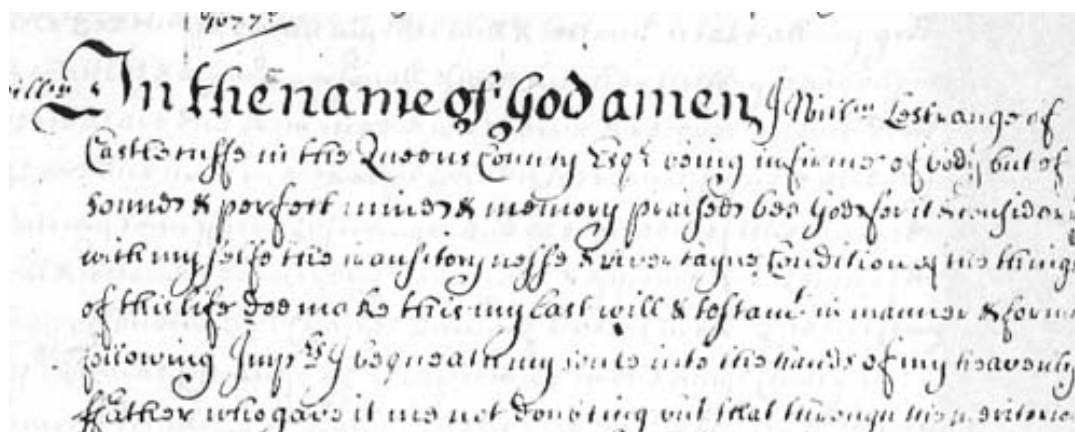 In the name of God amen I Will:m Lestrange of
Castlecuffe in the Queens County Esq:r being infirme of body but of
sound & perfect minde & memory praised bee God for it & consider
with my selfe the transitorynesse & uncertayne Condition of the things
of this life doe make this my last will & testam:t in manner & forme
following Imp:rs I bequeath my soule into the hands of my heavenly
ffather who gave it me not doubting but that through the meritorio